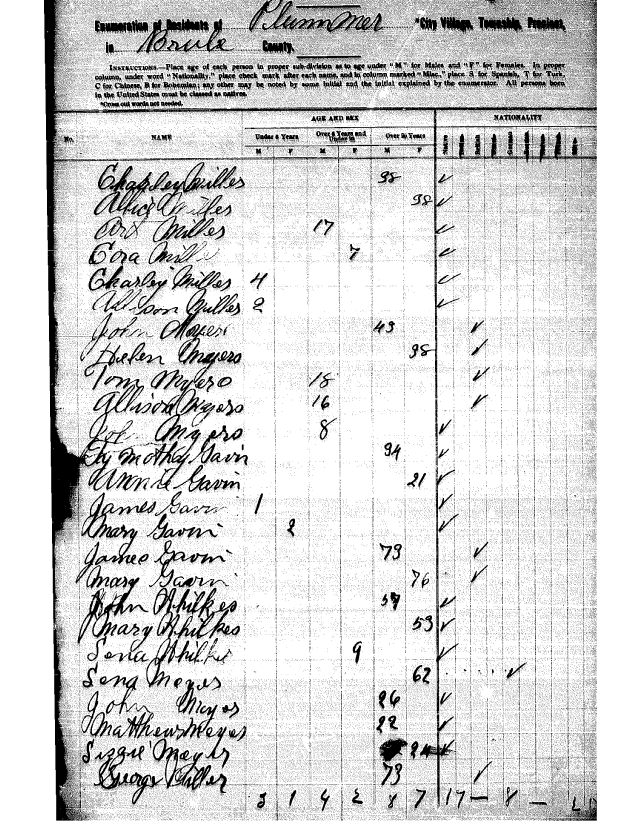 Enumeration of Residents of Plummer "City Village, Township, Precinct,
in Brule County.
INSTRUCTIONS.—Place age of each person in proper sub-division as to age under "M" for Males and "F" for Females. In proper
column, under word "Nationality," place check mark after each name, and in column marked "Misc." place S for Spanish, T for Turk,
C for Chinese, B for Bohemian; any other may be noted by some initial and the initial explained by the enumerator. All persons born
in the United States must be classed as natives.
*Cross out words not needed.
AGE AND SEX NATIONALITY
No. NAME Under 6 Years Over 6 Years and Under 20 Over 20 Years
M F M F M F
Charley Miller 38 ✓
Miller 38 ✓
Art Miller 17 ✓
Cora Mille 7 ✓
Charley Miller 4 ✓
Allison Miller 2 ✓
John Myers 43 ✓
Helen Myers 38 ✓
Tom Myers 18 ✓
Allison Myers 16 ✓
Myers 8 ✓
Tymothy Gavin 34 ✓
Annie Gavin 21 ✓
James Gavin 1 ✓
Mary Gavin 2 ✓
James Gavin 73 ✓
Mary Gavin 76 ✓
John Whilkes ✓
Mary Whilkes 53 ✓
Lena Whilke 9 ✓
Lena Meyer 62 ✓
John Meyer 26 ✓
Matthew Meyer 22 ✓
Lizzie Meyer 24 ✓
George Miller 73 ✓
3 1 4 2 8 7 17 — 8 —